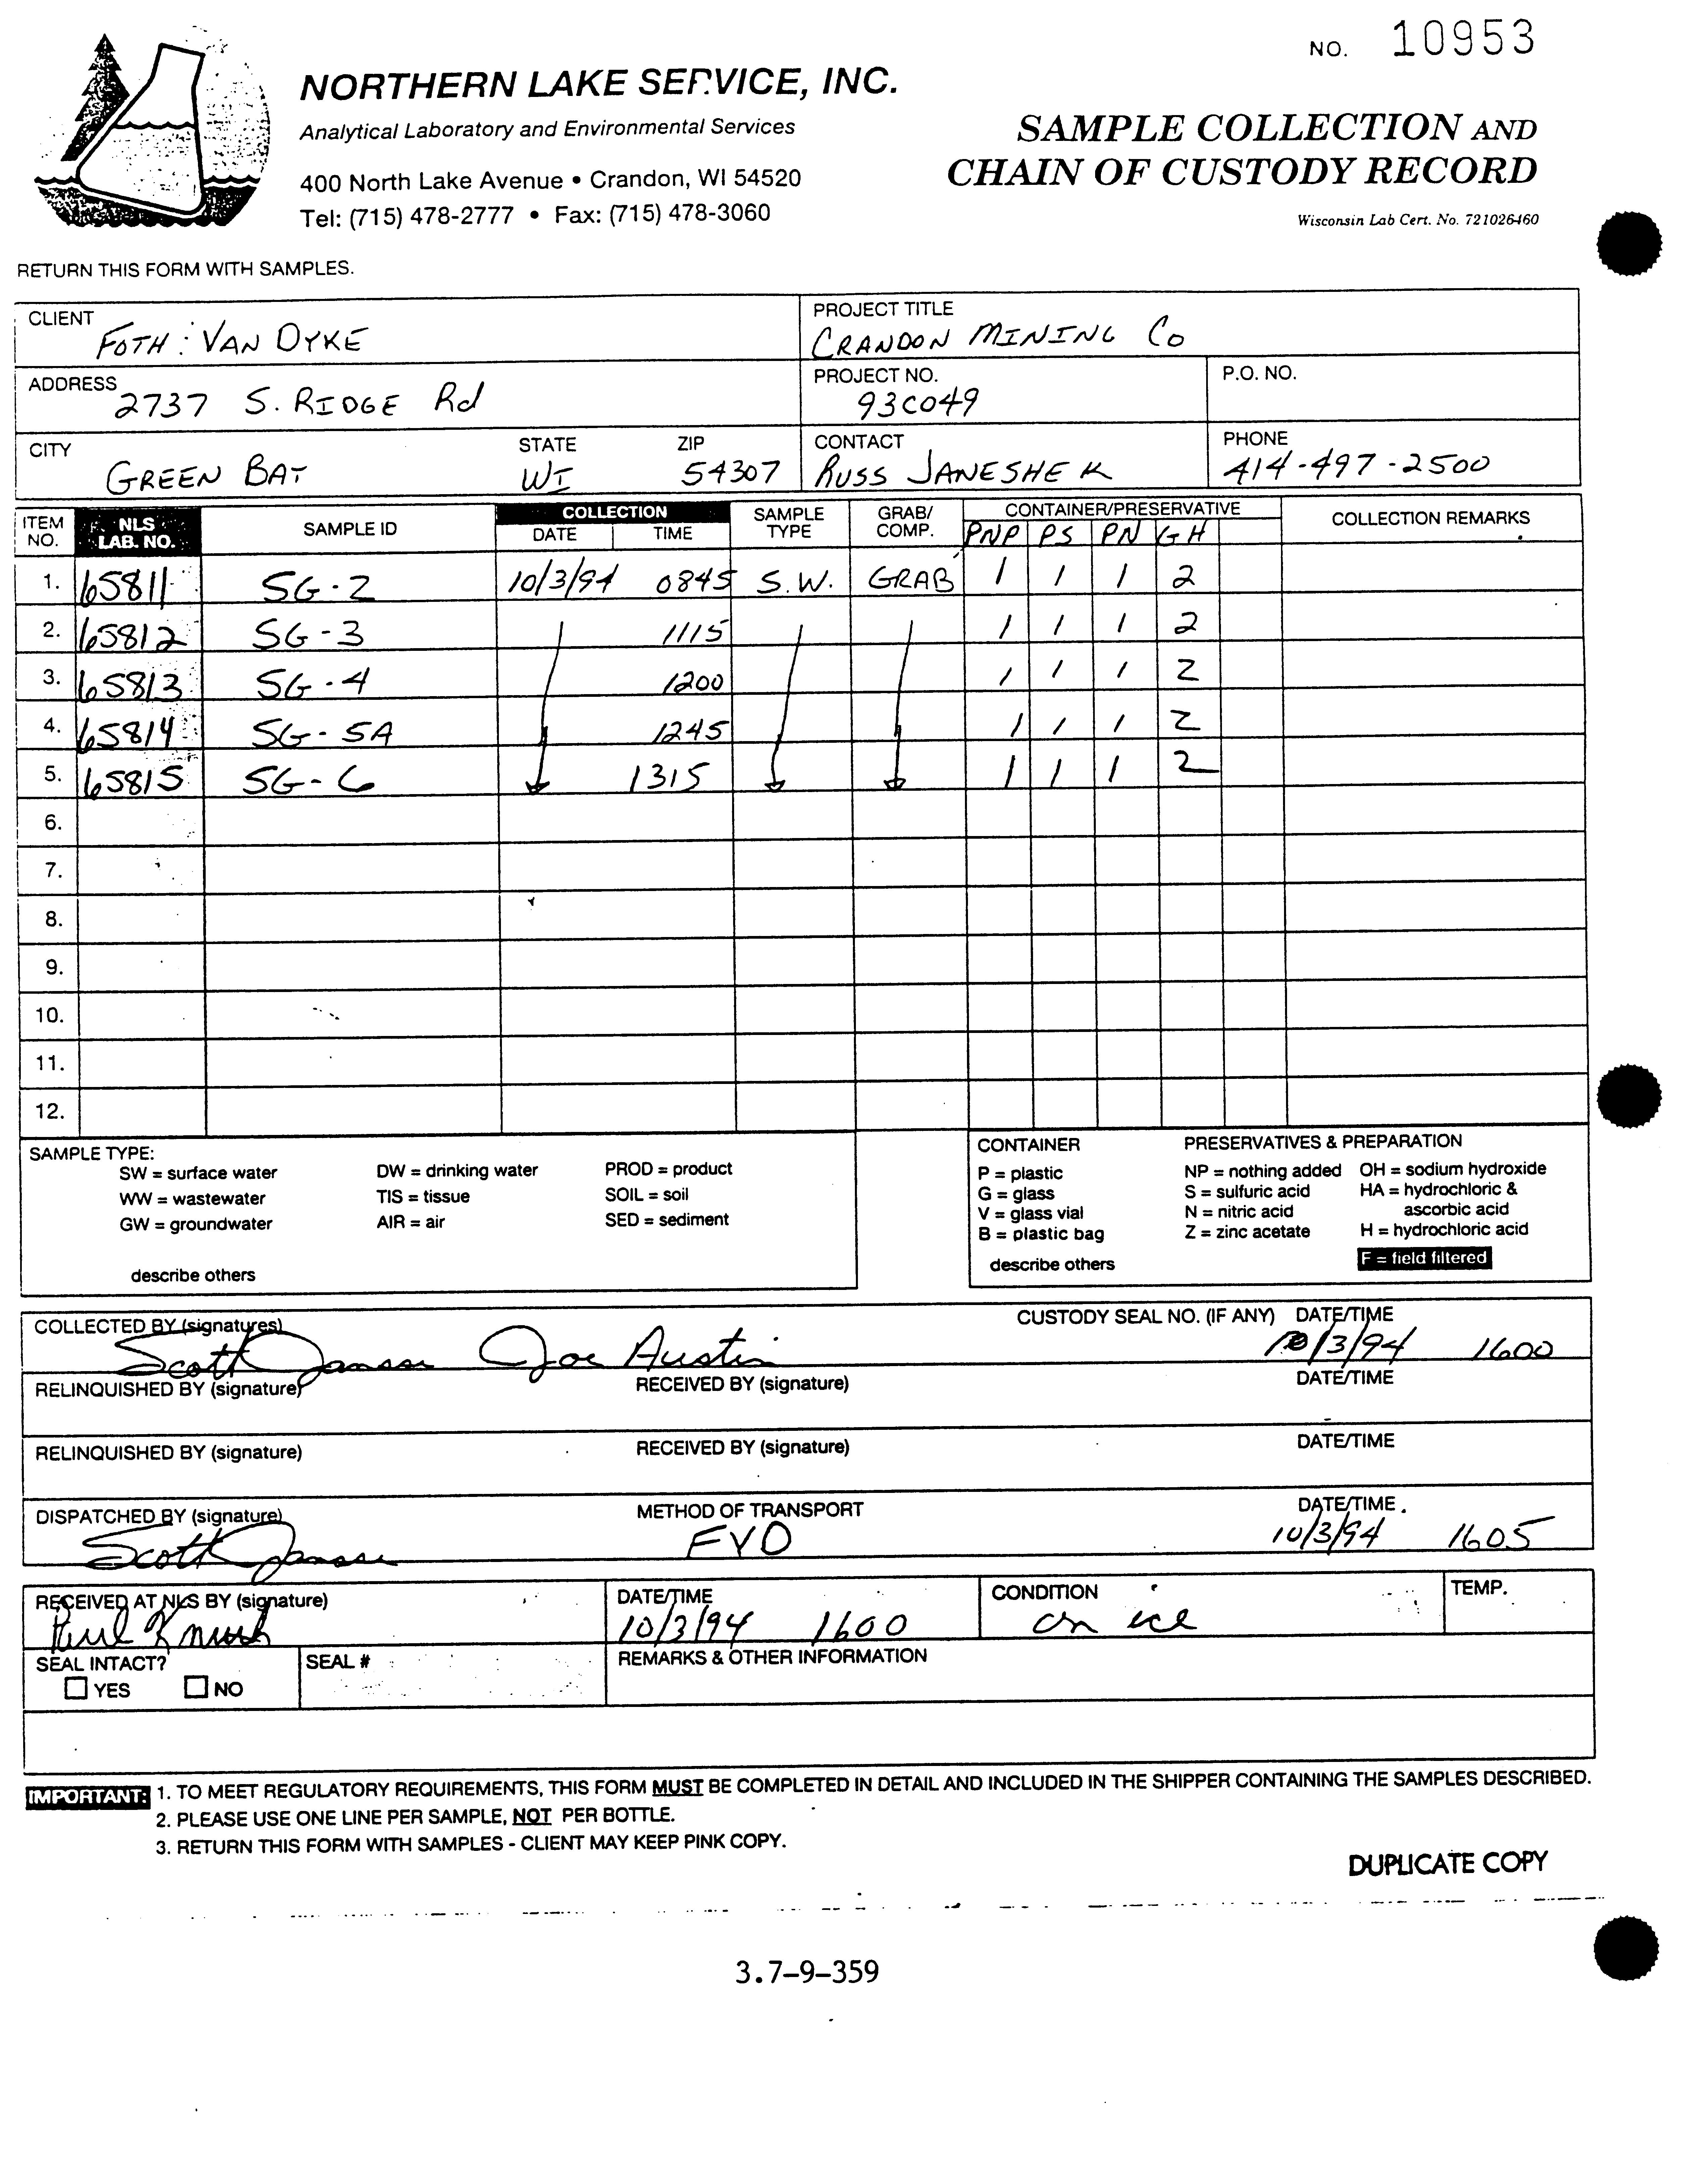 NO. 10953
NORTHERN LAKE SERVICE, INC.
Analytical Laboratory and Environmental Services
400 North Lake Avenue • Crandon, WI 54520
Tel: (715) 478-2777 • Fax: (715) 478-3060
SAMPLE COLLECTION AND
CHAIN OF CUSTODY RECORD
Wisconsin Lab Cert. No. 721026460
RETURN THIS FORM WITH SAMPLES.
CLIENT FOTH : VAN DYKE
PROJECT TITLE CRANDON MINING Co
ADDRESS 2737 S. RIDGE Rd
PROJECT NO. 93C049
P.O. NO.
CITY GREEN BAY STATE WI ZIP 54307
CONTACT RUSS JANESHEK
PHONE 414-497-2500
ITEM NO. NLS LAB. NO. SAMPLE ID COLLECTION DATE TIME SAMPLE TYPE GRAB/ COMP. CONTAINER/PRESERVATIVE PNP PS PN GH COLLECTION REMARKS
1. 65811 SG-2 10/3/94 0845 S.W. GRAB 1 1 1 2
2. 65812 SG-3 1115 1 1 1 2
3. 65813 SG-4 1200 1 1 1 2
4. 65814 SG-5A 1245 1 1 1 2
5. 65815 SG-6 1315 1 1 1 2
6.
7.
8.
9.
10.
11.
12.
SAMPLE TYPE:
SW = surface water DW = drinking water PROD = product
WW = wastewater TIS = tissue SOIL = soil
GW = groundwater AIR = air SED = sediment
describe others
CONTAINER PRESERVATIVES & PREPARATION
P = plastic NP = nothing added OH = sodium hydroxide
G = glass S = sulfuric acid HA = hydrochloric &
V = glass vial N = nitric acid ascorbic acid
B = plastic bag Z = zinc acetate H = hydrochloric acid
describe others F = field filtered
COLLECTED BY (signatures) CUSTODY SEAL NO. (IF ANY) DATE/TIME
Scott Jansen Joe Austin 10/3/94 1600
RELINQUISHED BY (signature) RECEIVED BY (signature) DATE/TIME
RELINQUISHED BY (signature) RECEIVED BY (signature) DATE/TIME
DISPATCHED BY (signature) METHOD OF TRANSPORT DATE/TIME
Scott Jansen FVD 10/3/94 1605
RECEIVED AT NLS BY (signature) DATE/TIME CONDITION TEMP.
10/3/94 1600 on ice
SEAL INTACT? SEAL # REMARKS & OTHER INFORMATION
YES NO
IMPORTANT: 1. TO MEET REGULATORY REQUIREMENTS, THIS FORM MUST BE COMPLETED IN DETAIL AND INCLUDED IN THE SHIPPER CONTAINING THE SAMPLES DESCRIBED.
2. PLEASE USE ONE LINE PER SAMPLE, NOT PER BOTTLE.
3. RETURN THIS FORM WITH SAMPLES - CLIENT MAY KEEP PINK COPY.
DUPLICATE COPY
3.7-9-359